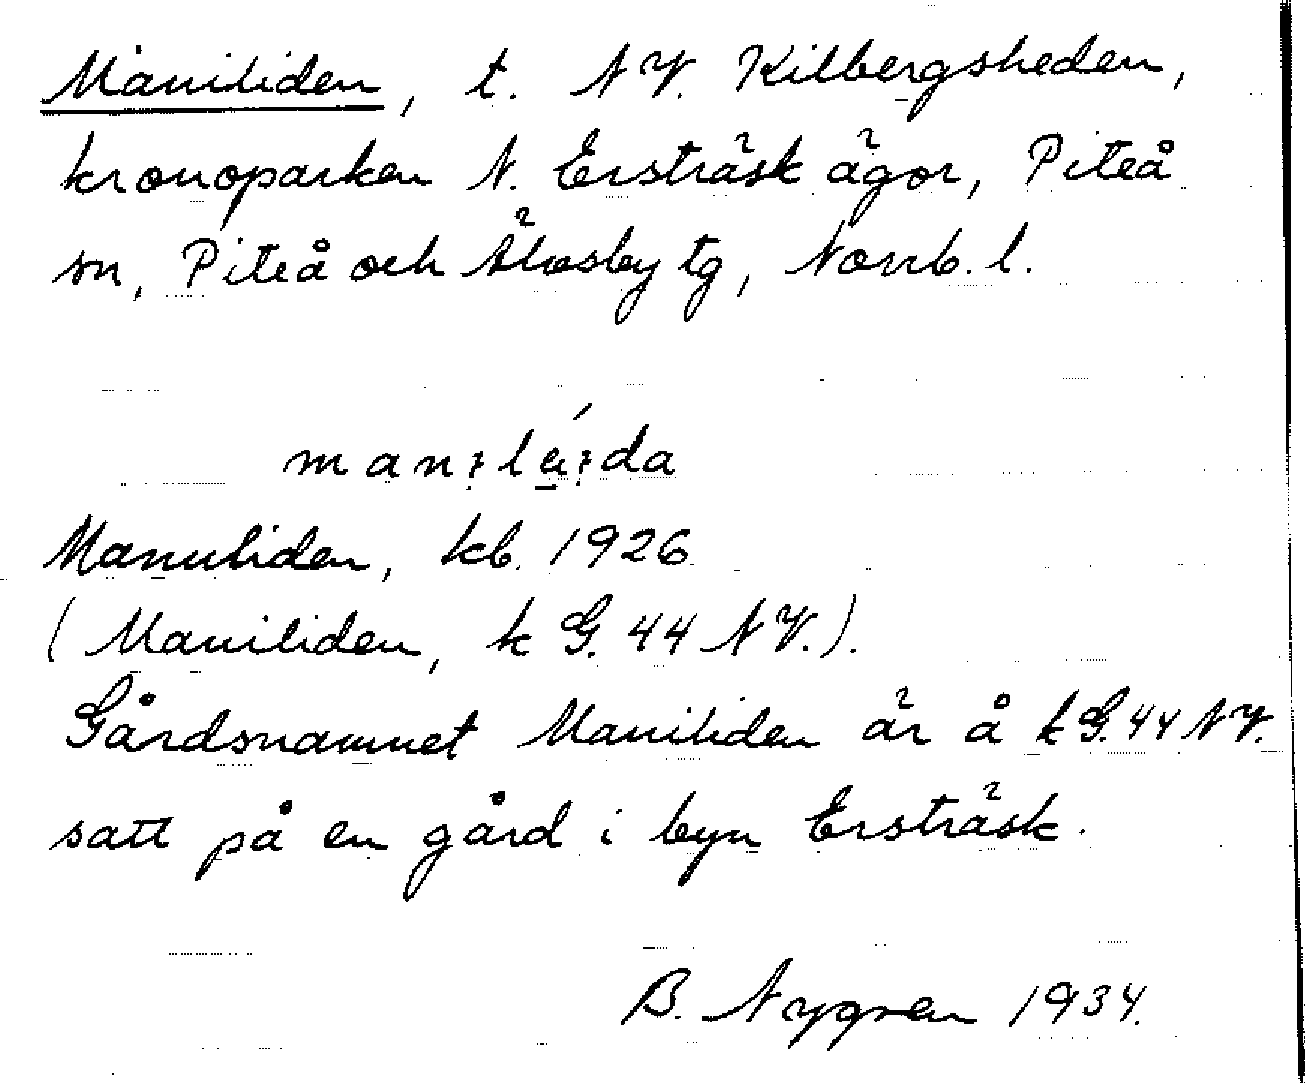 Maniliden, t. N V. Kilbergsheden,
kronoparken N. Ersträsk ägor, Piteå
sn, Piteå och Älvsby tg, Norrb. l.
Manuliden, kb. 1926
(Maniliden, k G. 44 N V.).
Gårdsnamnet Maniliden är å k G. 44 N V.
satt på en gård i byn Ersträsk.
B. Nygren 1934.